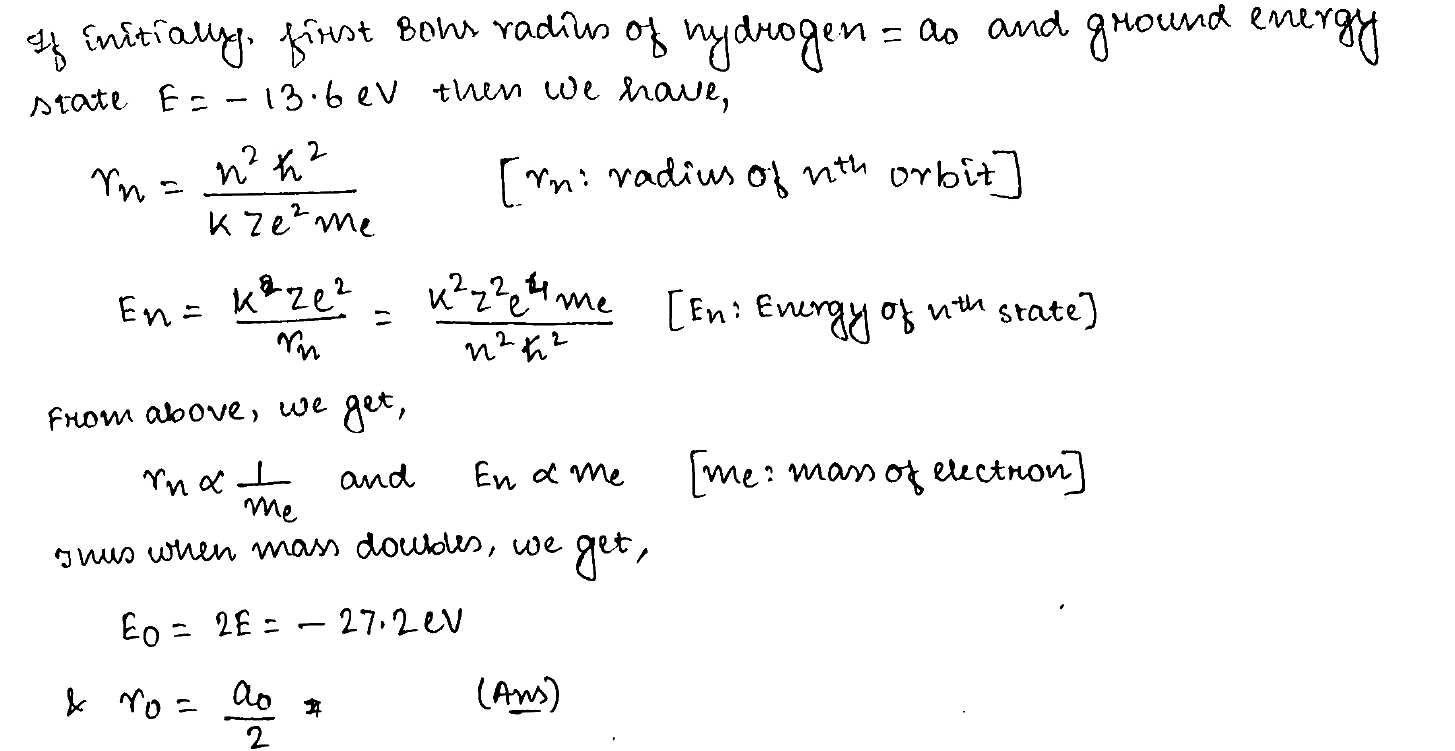 If initially, first Bohr radius of hydrogen = a₀ and ground energy
state E = - 13.6 eV then we have,
rₙ = n² ħ² / k Z e² mₑ [rₙ: radius of nᵗʰ orbit]
Eₙ = k Z e² / rₙ = k² Z² e⁴ mₑ / n² ħ² [Eₙ: Energy of nᵗʰ state]
From above, we get,
rₙ ∝ 1 / mₑ and Eₙ ∝ mₑ [mₑ: mass of electron]
Thus when mass doubles, we get,
E₀ = 2E = - 27.2 eV
& r₀ = a₀ / 2 (Ans)